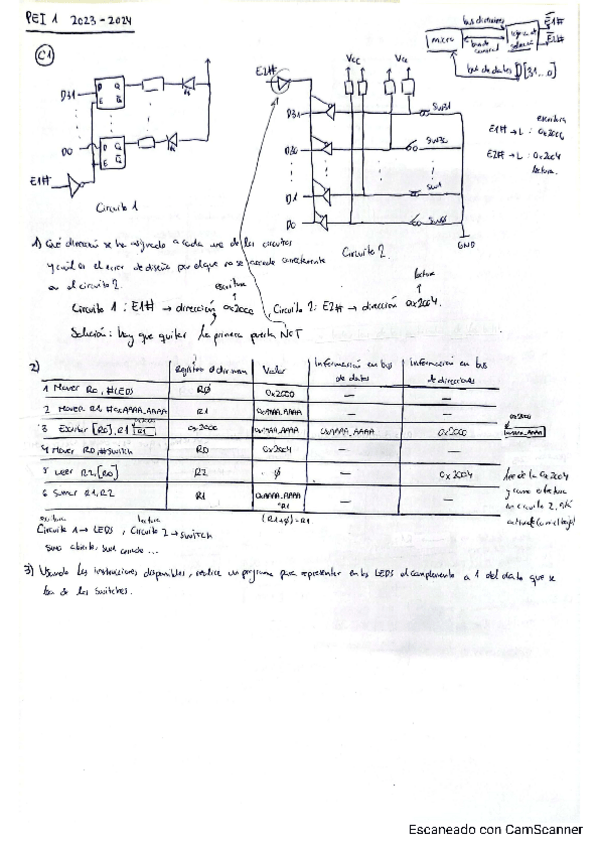 PEI 1 2023-2024
bus direcciones
E1#
micro
bus de control
E2#
bus de datos D[31...0]
C1
Vcc
E2#
D31
P Q
E Q
D31
SW31
escritura
E1# → L : 0x2000
D30
E2# → L : 0x2004
lectura.
D0
P Q
E Q
D1
SW1
E1#
D0
Circuito 1
GND
1) Qué dirección se ha asignado a cada uno de los circuitos
Circuito 2.
y cuál es el error de diseño por el que no se accede correctamente
en el circuito 2.
escritura
lectura
Circuito 1 : E1# → dirección 0x2000, Circuito 2: E2# → dirección 0x2004.
Solución: hay que quitar la primera puerta NOT
2)
Valor
Información en bus de datos
Información en bus de direcciones
1 Mover R0, #LEDS R0 0x2000 — —
2 Mover R1, #0xAAAA_AAAA R1 0xAAAA_AAAA — —
3 Escribir [R0], R1 0x2000 0xAAAA_AAAA 0xAAAA_AAAA 0x2000
4 Mover R0, #switch R0 0x2004 — —
5 Leer R2, [R0] R2 ∅ — 0x2004
6 Sumar R1, R2 R1 0xAAAA_AAAA — —
(R1+∅)=R1
escritura lectura
Circuito 1 → LEDS, Circuito 2 → SWITCH
3) Usando las instrucciones disponibles, realice un programa para representar en los LEDS el complemento a 1 del dato que se
lea de los switches.
Escaneado con CamScanner